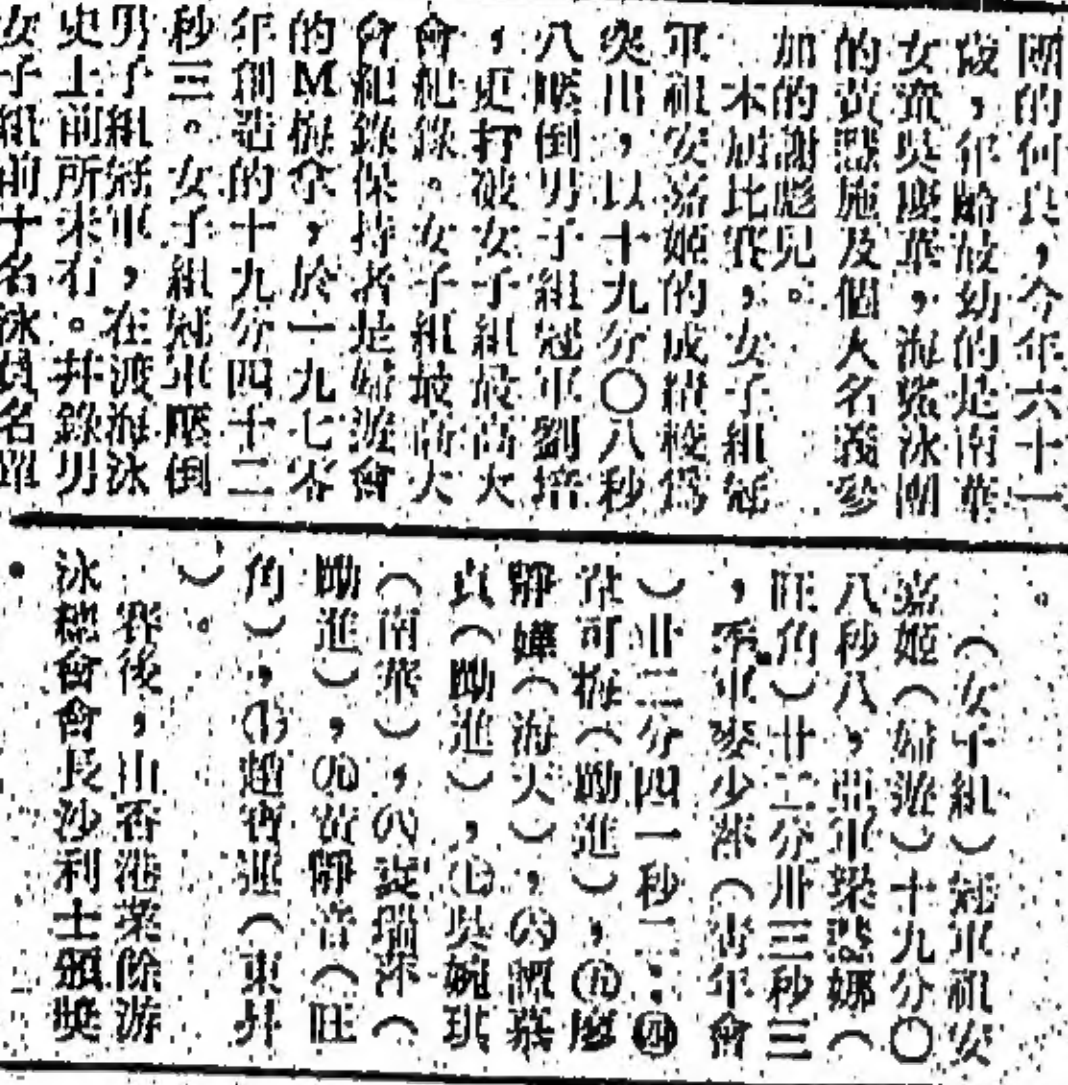 團的何良，今年六十一
歲，年齡最幼的是南華
女流吳慶華，海豬泳團
的黃懿施及個人名義參
加的謝彪兒。
本屆比賽，女子組冠
軍祖安嘉姬的成績較爲
突出，以十九分〇八秒
八壓倒男子組冠軍劉培
，更打破女子組最高大
會紀錄。女子組最高大
會紀錄保持者是婦遊會
的M梅奈，於一九七零
年創造的十九分四十二
秒三。女子組冠軍壓倒
男子組冠軍，在渡海泳
史上前所未有。幷錄男
女子組前十名泳員名單
。
（女子組）冠軍祖安
嘉姬（婦遊）十九分〇
八秒八，亞軍梁慧娜（
旺角）廿二分卅三秒三
，季軍麥少萍（靑年會
）廿三分四一秒二：㊃
韋可梅（勵進），㊄廖
靜嬅（海天），㊅譚慕
貞（勵進），㊆吳婉琪
（南華），㊇ 瑞萍（
勵進），㊈黃靜音（旺
角），㊉趙寶蓮（東井
）。
賽後，由香港業餘游
泳總會會長沙利士頒獎
．